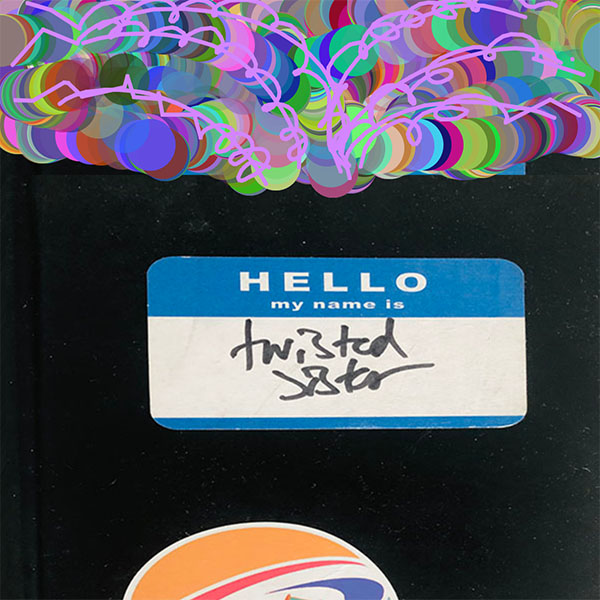 HELLO
my name is
twisted
sister